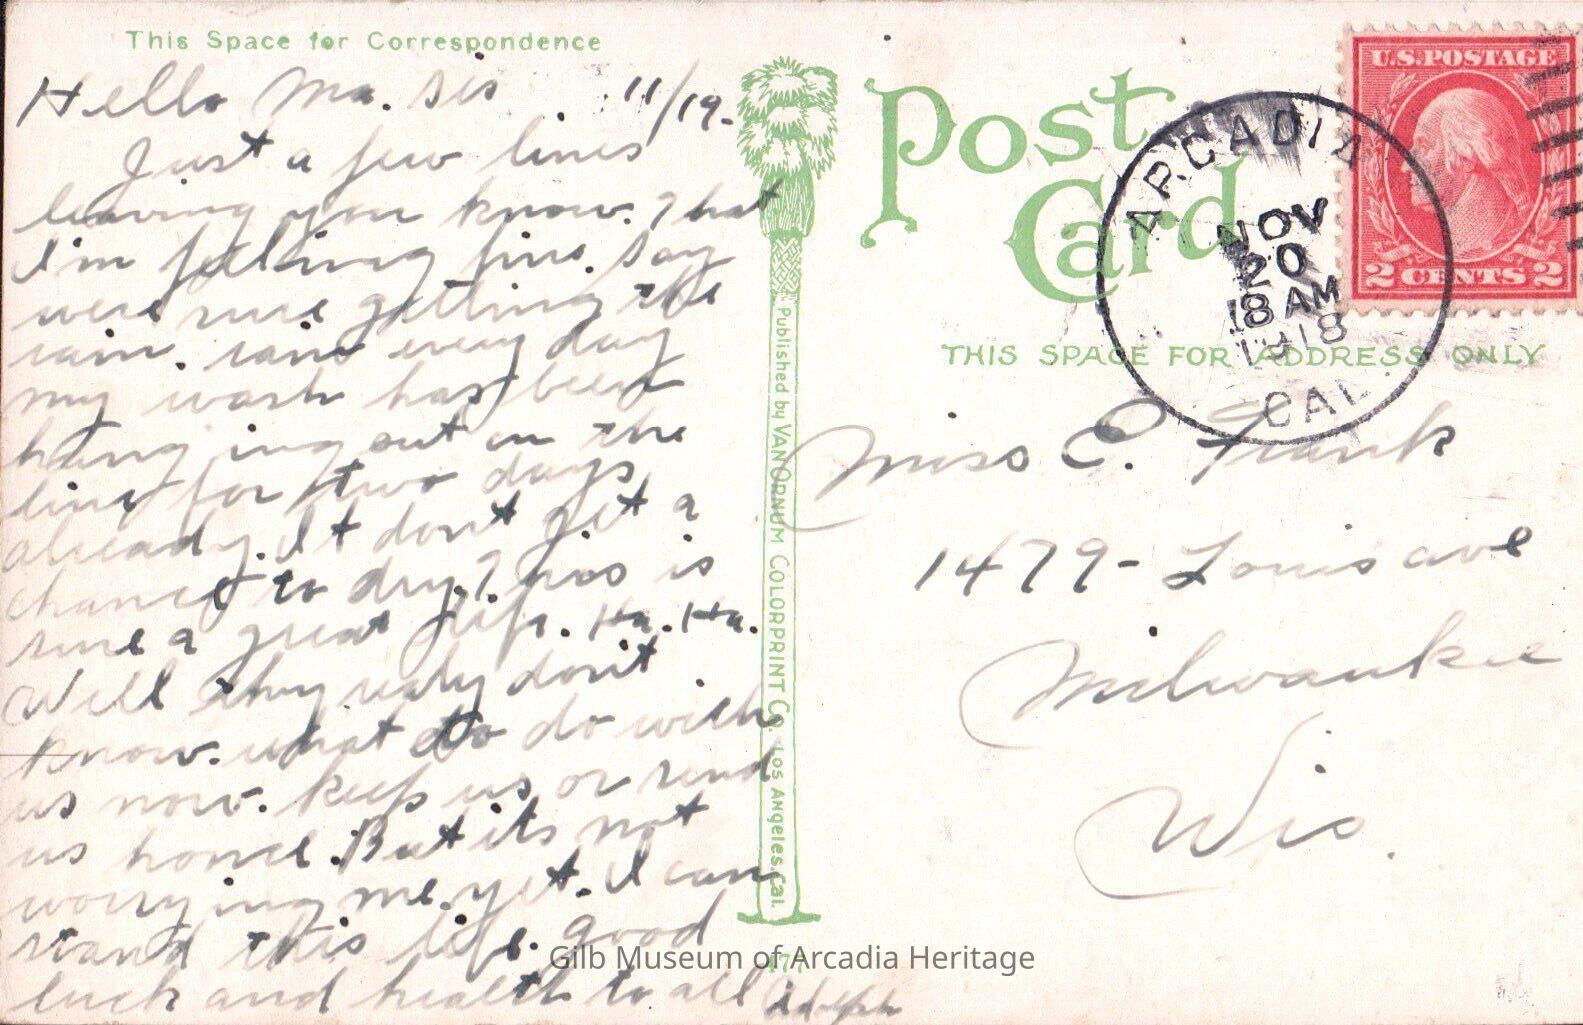 This Space for Correspondence
Hello Ma. Sis 11/19-
Just a few lines
leaving you know. That
I'm feeling fine. Say
were sure getting the
rain. rain every day
my wash has been
hanging out on the
line for two days
already. It dont get a
chance to dry. This is
sure a great life. Ha. Ha.
Well they don't
know. what to do with
us now. keep us or send
us home. But its not
worrying me. yet. I can
stand this life. good
luck and health to all Adolph
Published by VAN ORNUM COLORPRINT CO. LOS ANGELES, CAL.
Post
Card
U.S. POSTAGE
2 CENTS 2
ARCADIA
NOV
20
18 AM
1918
CAL.
THIS SPACE FOR ADDRESS ONLY
Miss E. Frank
1479- Louis ave
Milwaukee
Wis.
Gilb Museum of Arcadia Heritage